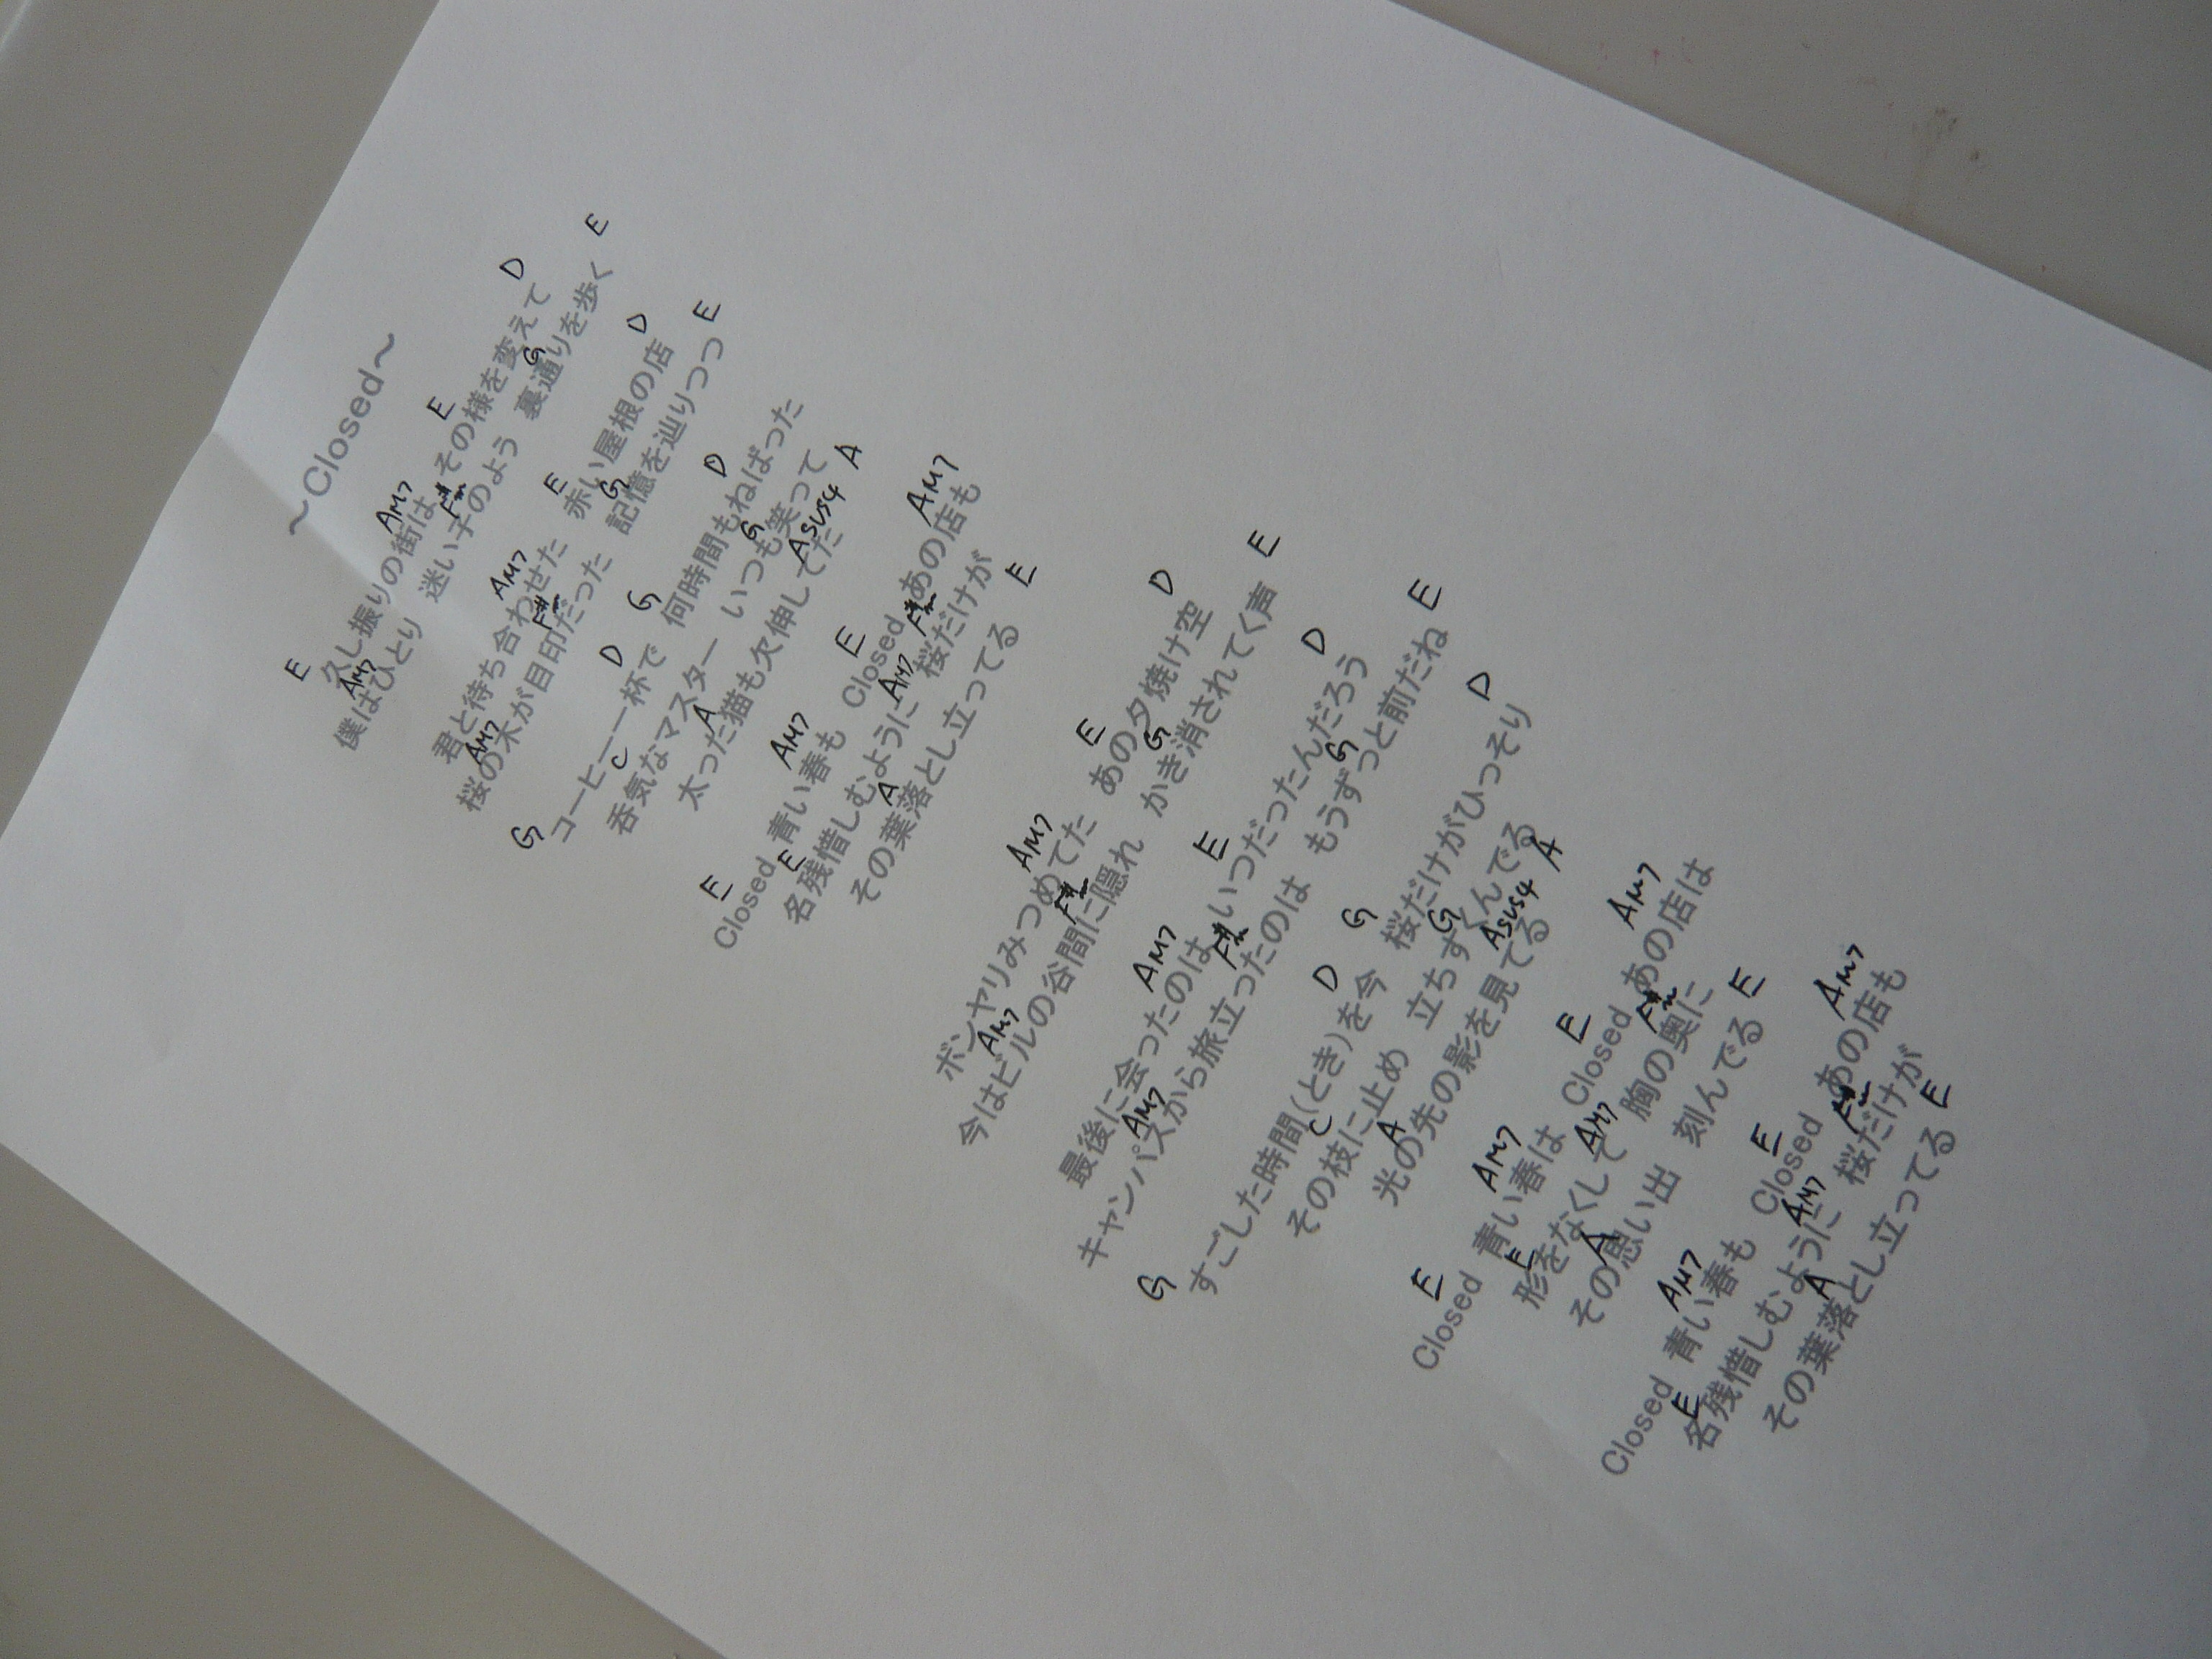 ～Closed～
E AM7 E D
久し振りの街は その様を変えて
AM7 F#m G E
僕はひとり 迷い子のよう 裏通りを歩く
AM7 E D
君と待ち合わせた 赤い屋根の店
AM7 F#m G E
桜の木が目印だった 記憶を辿りつつ
G D G D
コーヒー一杯で 何時間もねばった
C G
呑気なマスター いつも笑って
A Asus4 A
太った猫も欠伸してた
E AM7 E AM7
Closed 青い春も Closed あの店も
E AM7 F#m
名残惜しむように 桜だけが
A E
その葉落とし立ってる
AM7 E D
ボンヤリみつめてた あの夕焼け空
AM7 F#m G E
今はビルの谷間に隠れ かき消されてく声
AM7 E D
最後に会ったのは いつだったんだろう
AM7 F#m G E
キャンパスから旅立ったのは もうずっと前だね
G D G D
すごした時間(とき)を今 桜だけがひっそり
C G
その枝に止め 立ちすくんでる
A Asus4 A
光の先の影を見てる
E AM7 E AM7
Closed 青い春は Closed あの店は
E AM7 F#m
形をなくして 胸の奥に
A E
その思い出 刻んでる
AM7 E AM7
Closed 青い春も Closed あの店も
E AM7 F#m
名残惜しむように 桜だけが
A E
その葉落とし立ってる